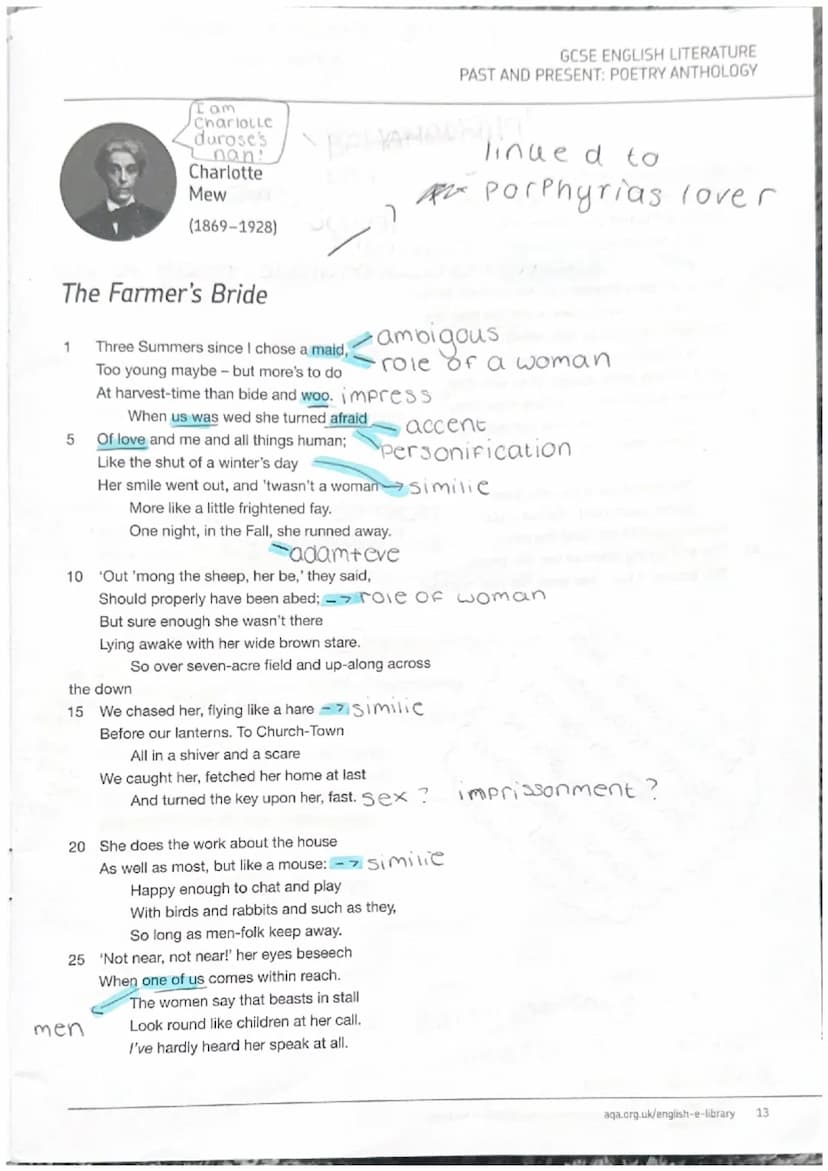 GCSE ENGLISH LITERATURE
PAST AND PRESENT: POETRY ANTHOLOGY
I am
Charlotte
durose's
nan!
Charlotte
Mew
(1869–1928)
linued to
porphyrias lover
The Farmer's Bride
1 Three Summers since I chose a maid,
ambigous
role of a woman
Too young maybe – but more's to do
At harvest-time than bide and woo. impress
When us was wed she turned afraid
accent
5 Of love and me and all things human;
personification
Like the shut of a winter's day
Her smile went out, and 'twasn't a woman → similie
More like a little frightened fay.
One night, in the Fall, she runned away.
adam+eve
10 'Out 'mong the sheep, her be,' they said,
Should properly have been abed; → role of woman
But sure enough she wasn't there
Lying awake with her wide brown stare.
So over seven-acre field and up-along across
the down
15 We chased her, flying like a hare → similie
Before our lanterns. To Church-Town
All in a shiver and a scare
We caught her, fetched her home at last
And turned the key upon her, fast. sex? imprissonment?
20 She does the work about the house
As well as most, but like a mouse: → similie
Happy enough to chat and play
With birds and rabbits and such as they,
So long as men-folk keep away.
25 'Not near, not near!' her eyes beseech
When one of us comes within reach.
The women say that beasts in stall
men
Look round like children at her call.
I've hardly heard her speak at all.
aqa.org.uk/english-e-library 13